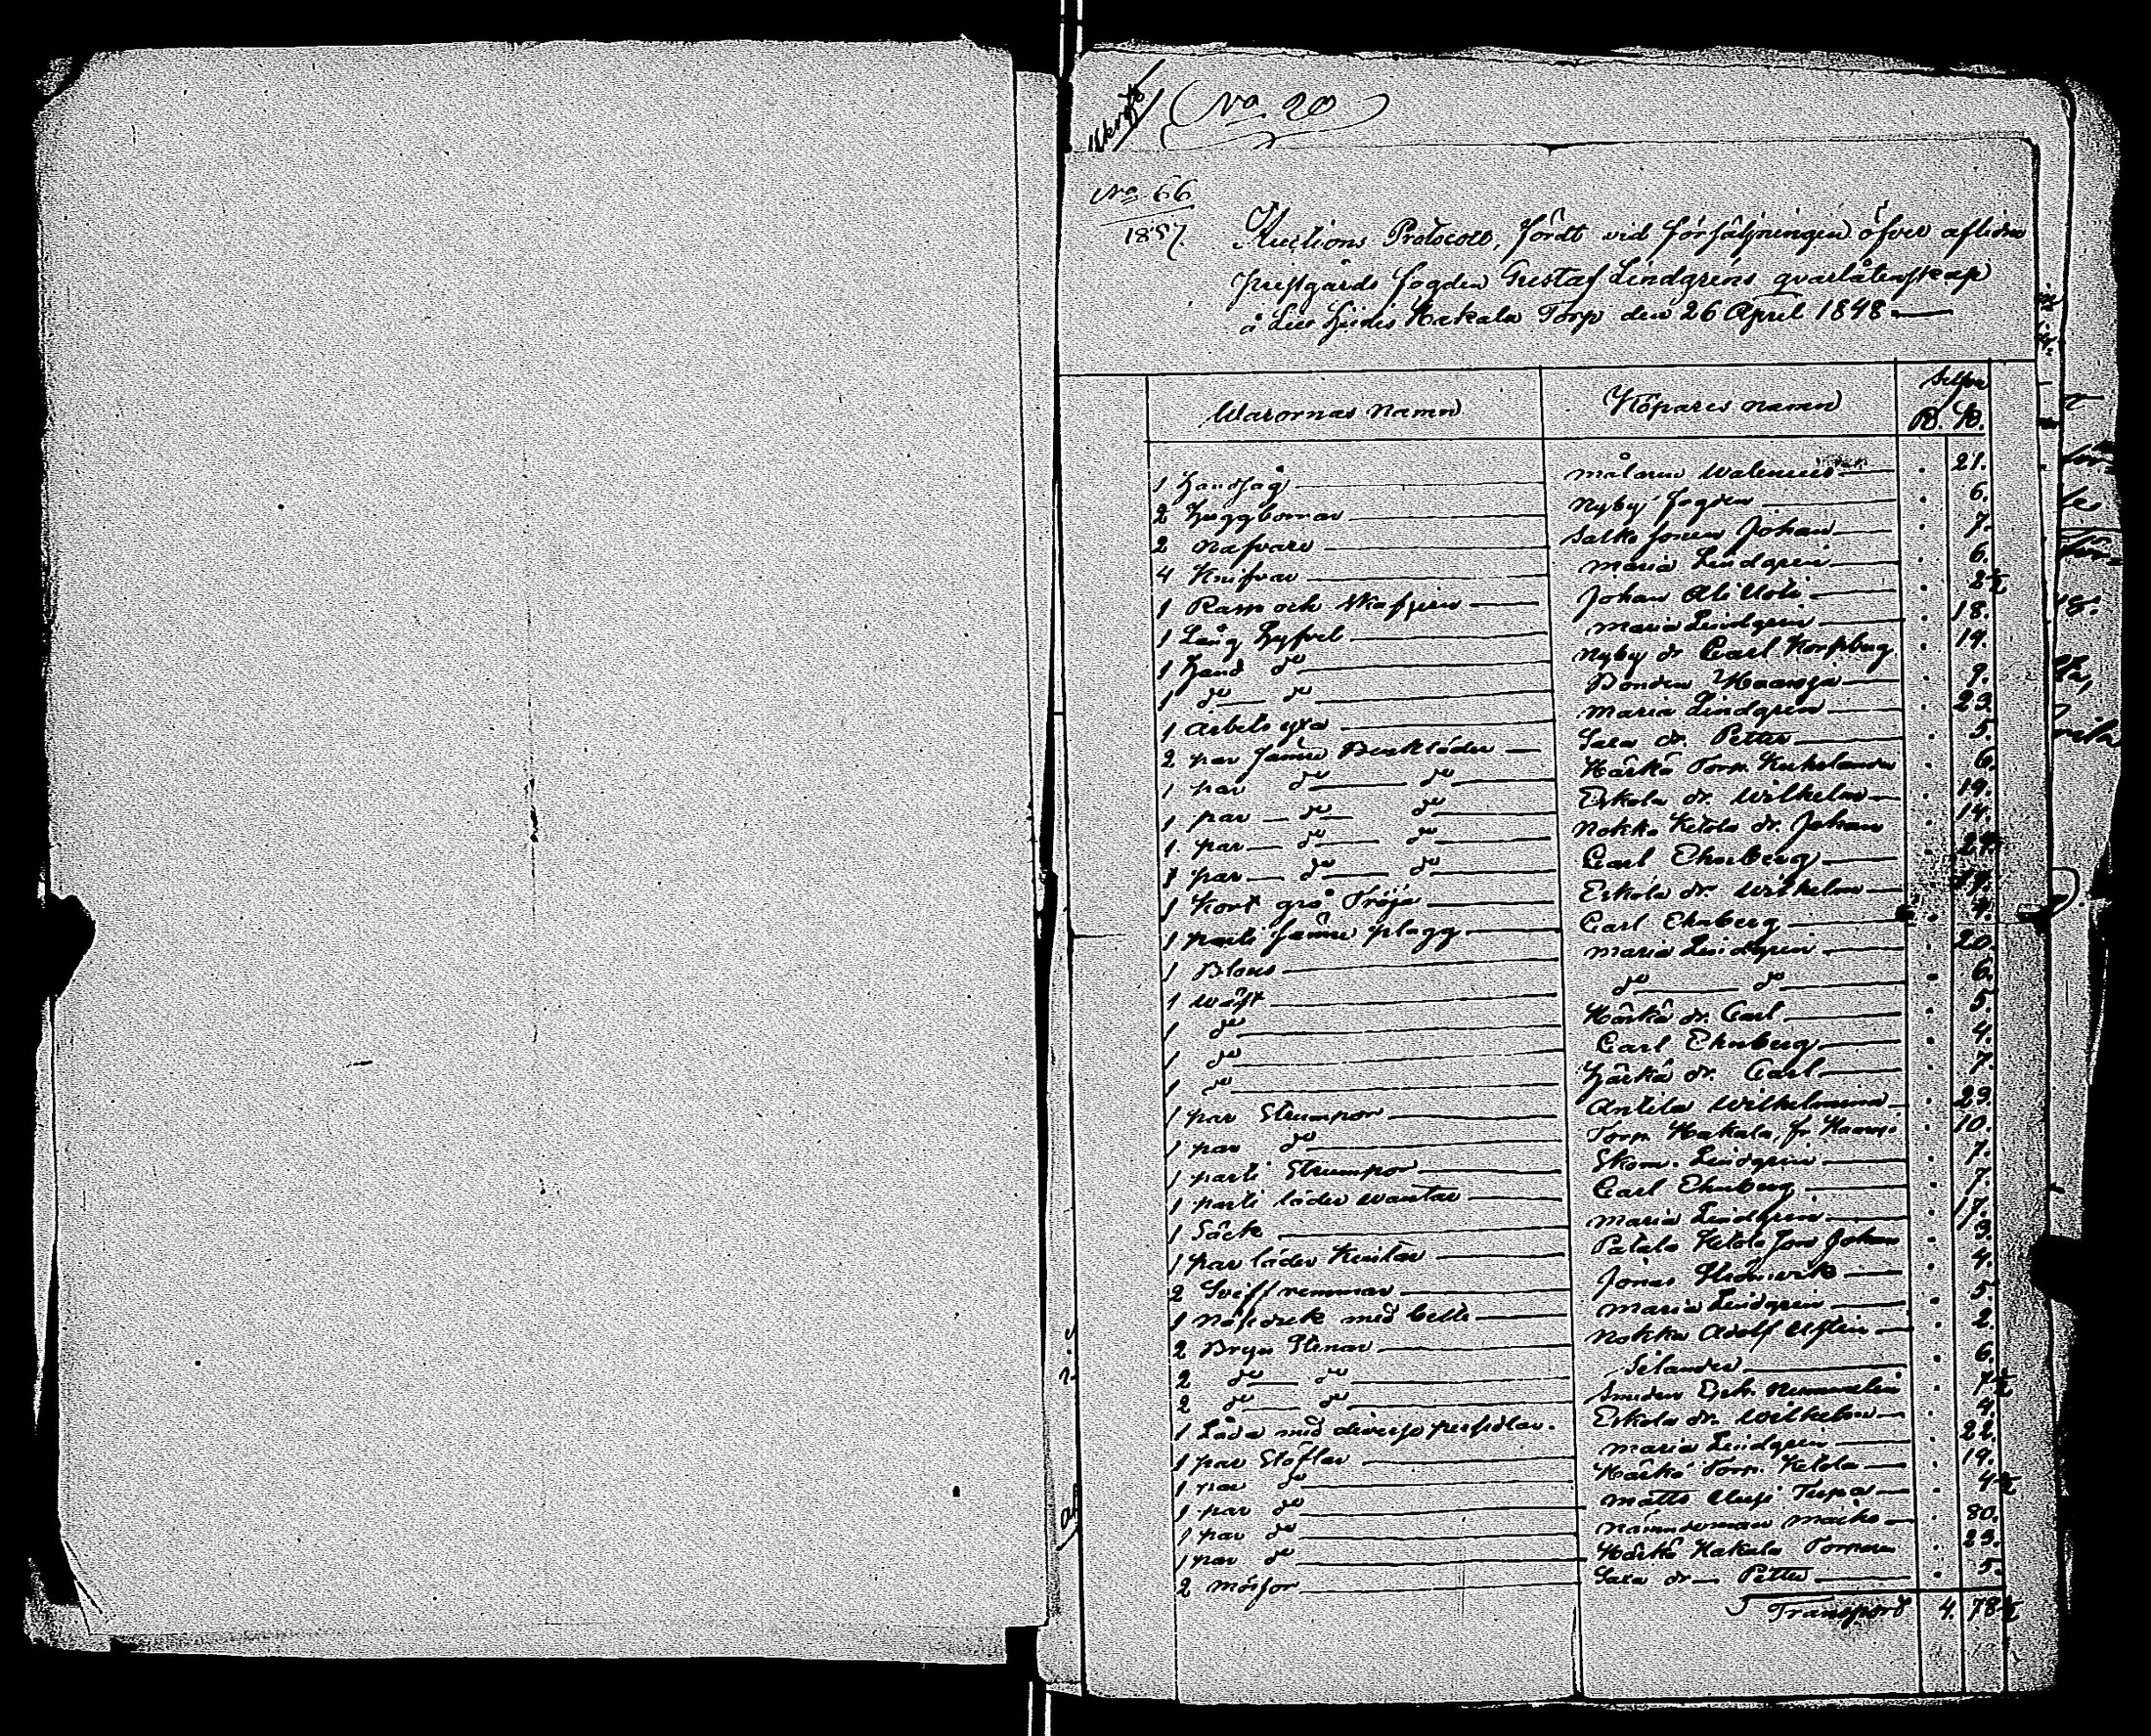 No 20
No 66
1857.
Auctions Protocoll, fördt vid försäljningen öfver aflidne
prestgårds fogden Gustaf Lindgrens qvarlåtenskap
å Hakala Torp den 26 April 1848
Silfver
Warornas namn Köpares namn R. K.
1 Handsåg målaren Walenius . 21.
2 Huggbornar Nyby fogden . 6.
2 nafvare Salko sonen Johan . 7.
4 Knifvar Maria Lindgren . 6.
1 Ram och Skafjern Johan Ali Uoti . 2½
1 Lång Hyfvel Maria Lindgren . 18.
1 Hand do Nyby dr Carl Korpberg . 19.
1 do do Bonden . 9.
1 Arbets yxa Maria Lindgren . 23.
2 par sämre Benkläder Sara dr. Petter . 5.
1 par do do Härkä Torp. . 6.
1 par do do Eskola dr. Wilhelm . 19.
1 par do do Nokka Ketola dr. Johan . 14.
1 par do do Carl Ehnberg
1 Kort grå Tröja Eskola dr. Wilhelm
1 parti sämre plagg Carl Ehnberg
1 Blous Maria Lindgren . 20.
1 Wäst do do . 6.
1 do Härkä dr. Carl . 5.
1 do Carl Ehnberg . 4.
1 do Härkä dr. Carl . 7.
1 par Strumpor Antila Wilhelmina . 23.
1 par do Torp. Hakala, fr . 10.
1 parti Strumpor Skom. Lindgren . 7.
1 parti läder wantar Carl Ehnberg . 7.
1 Säck Maria Lindgren . 17.
1 par läder Kintar Ketola son Johan . 3.
2 remmar Jonas . 4.
1 Näfsduk med bälte Maria Lindgren . 5.
2 Bryn Stenar Nokka Adolf . 2.
2 do do Selander . 6.
2 do do Smeden . 7½
1 Låda med diverse persedlar. Eskola dr. Wilhelm . 4.
1 par Stöflar Maria Lindgren . 22.
1 par do Härkä Torp. Ketola . 19.
1 par do Matts Tupa . 4½
1 par do Nämndeman . 80.
1 par do Härkä Hakala Torparen . 23.
2 mössor Sara dr Petter . 5.
Transport 4. 78½